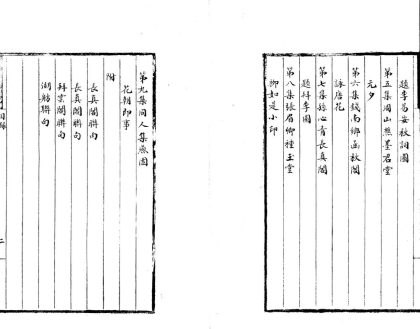 題李易安秋詞圖
第五集周山熊墨君堂
元夕
第六集錢南鄉函秋閣
詠唐花
第七集孫心青長真閣
題桂李圖
第八集張眉卿種玉堂
柳如是小印
第九集同人集燕園
花朝即事
附
長真閣聯句
長真閣聯句
拜雲閣聯句
湖舫聯句
目錄
二